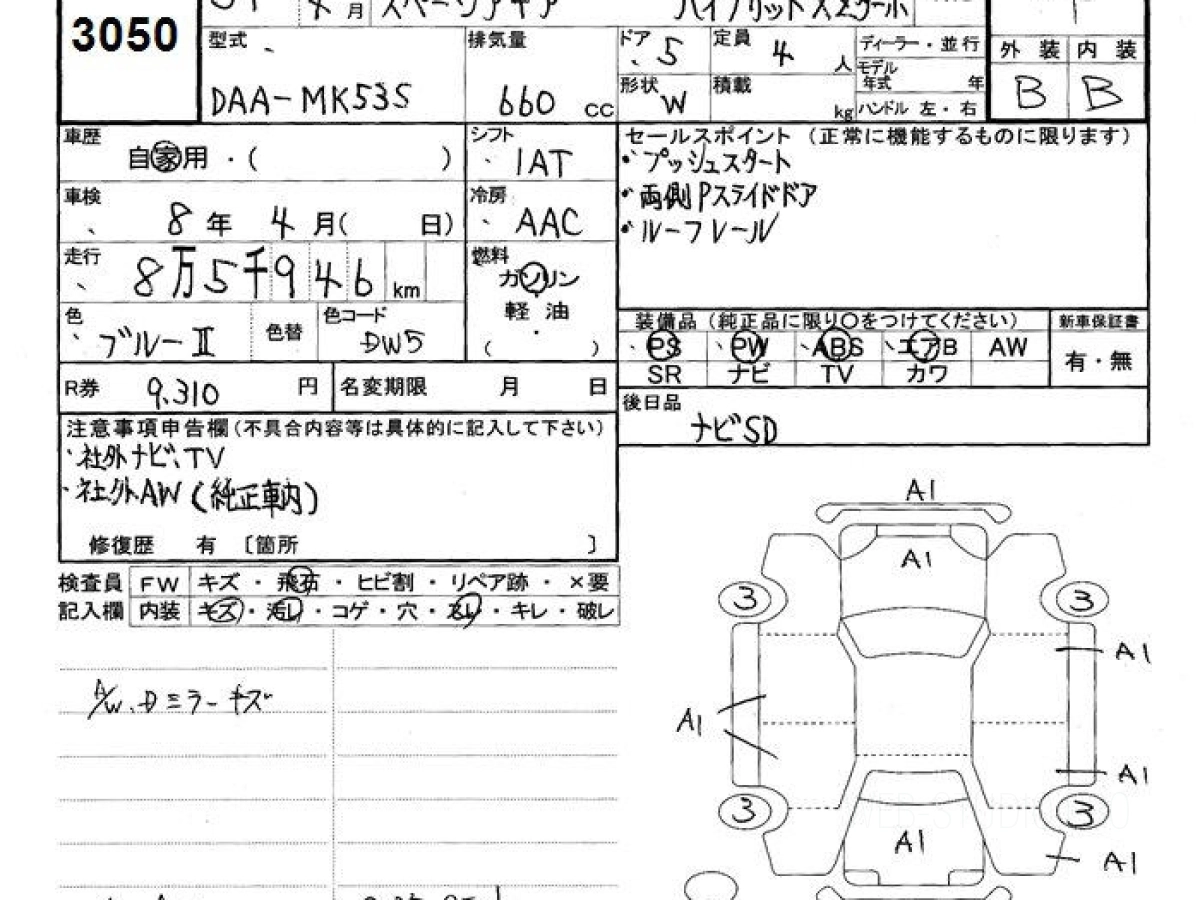 3050
4月 スペーシアギア ハイブリッドXZターボ
型式 DAA-MK53S
排気量 660 CC
ドア 5
定員 4 人
形状 W
積載 kg
ディーラー・並行
モデル年式 年
ハンドル 左・右
外装 内装
B B
車歴 自家用・( )
シフト IAT
車検 8年 4月( 日)
冷房 AAC
走行 8万5千946 km
燃料 ガソリン
軽油
・
( )
色 ブルーⅡ
色替
色コード DW5
R券 9,310 円
名変期限 月 日
セールスポイント (正常に機能するものに限ります)
・プッシュスタート
・両側Pスライドドア
・ルーフレール
装備品 (純正品に限り〇をつけてください)
新車保証書
PS PW ABS エアB AW
有・無
SR ナビ TV カワ
後日品
ナビSD
注意事項申告欄(不具合内容等は具体的に記入して下さい)
・社外ナビ、TV
・社外AW(純正車内)
修復歴 有 〔箇所 〕
検査員 FW キズ・飛石・ヒビ割・リペア跡・×要
記入欄 内装 キズ・汚レ・コゲ・穴・スレ・キレ・破レ
A/W、Dミラーキズ
A1
A1
3 3
A1
A1
A1
3 3
A1
A1